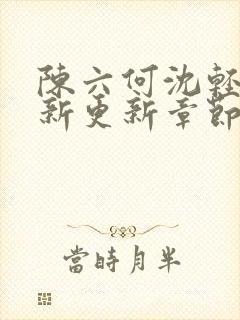 陳六何沈輕
新更新章節
當時月半